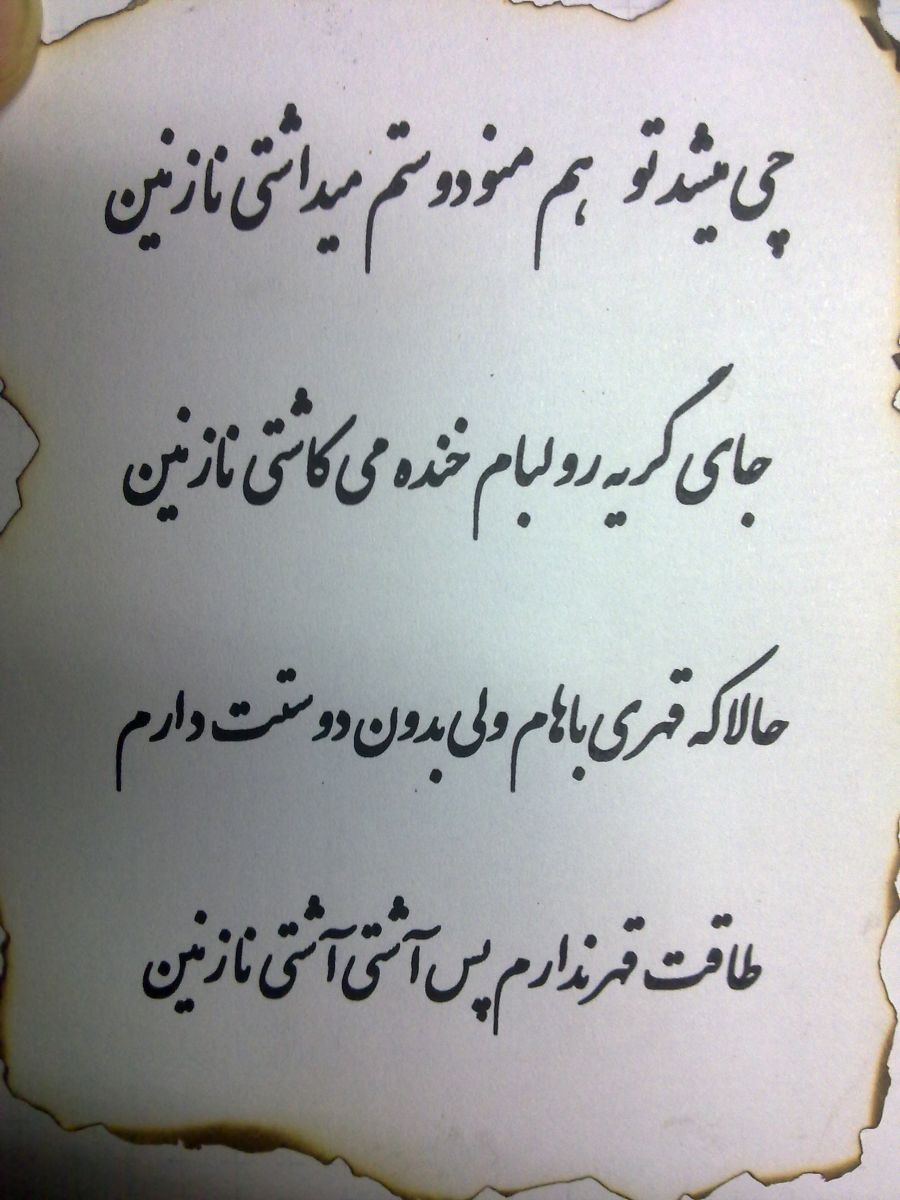 چی میشد تو هم منو دوستم میداشتی نازنین
جای گریه رو لبام خنده می کاشتی نازنین
حالا که قهری باهام ولی بدون دوستت دارم
طاقت قهر ندارم پس آشتی آشتی نازنین